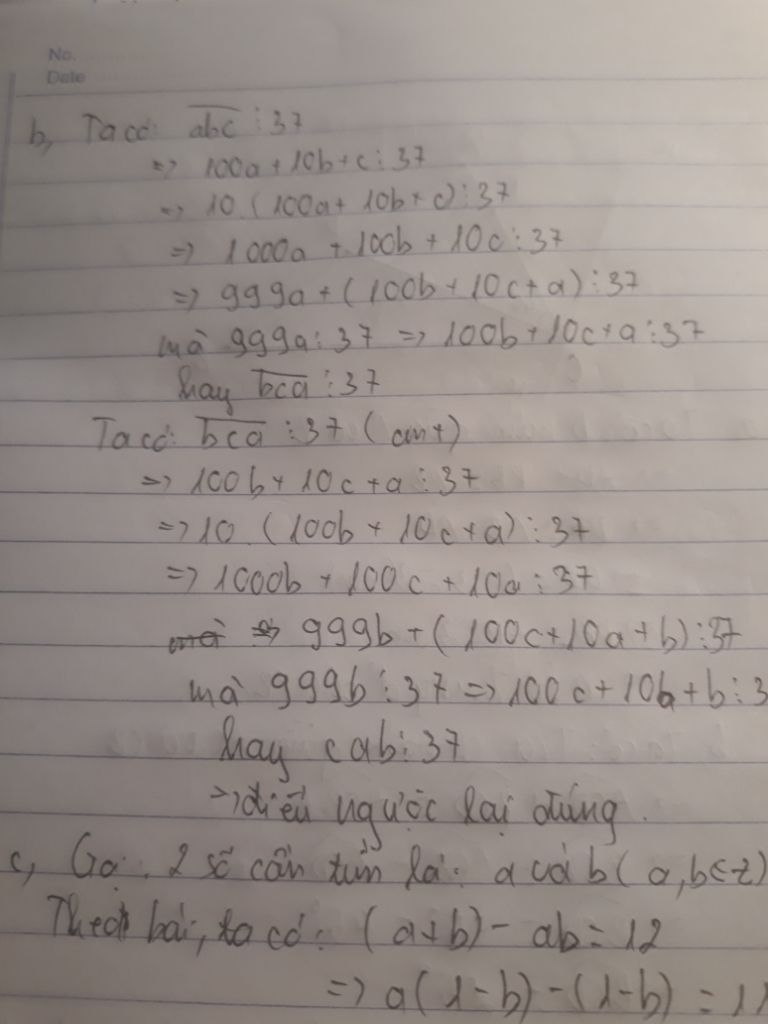 No.
Date
b, Ta có: abc ⋮ 37
=> 100a + 10b + c ⋮ 37
=> 10 (100a + 10b + c) ⋮ 37
=> 1000a + 100b + 10c ⋮ 37
=> 999a + (100b + 10c + a) ⋮ 37
mà 999a ⋮ 37 => 100b + 10c + a ⋮ 37
hay bca ⋮ 37
Ta có: bca ⋮ 37 (cmt)
=> 100b + 10c + a ⋮ 37
=> 10 (100b + 10c + a) ⋮ 37
=> 1000b + 100c + 10a ⋮ 37
=> 999b + (100c + 10a + b) ⋮ 37
mà 999b ⋮ 37 => 100c + 10a + b ⋮ 3
hay cab ⋮ 37
=> điều ngược lại đúng.
c, Gọi 2 số cần tìm là: a và b (a, b ∈ z)
Theo bài, ta có: (a + b) - ab = 12
=> a (1 - b) - (1 - b) = 11